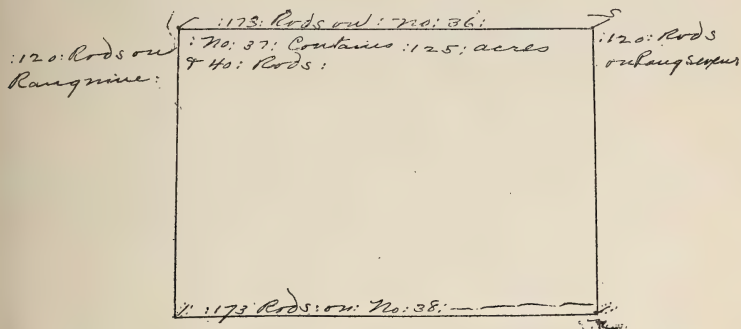 :173: Rods on : No: 36:
:120: Rods on
Rangnine:
: No: 37: Contains :125: acres
& 40: Rods:
:120: Rods
on Rang
:173 Rods: on: No: 38: